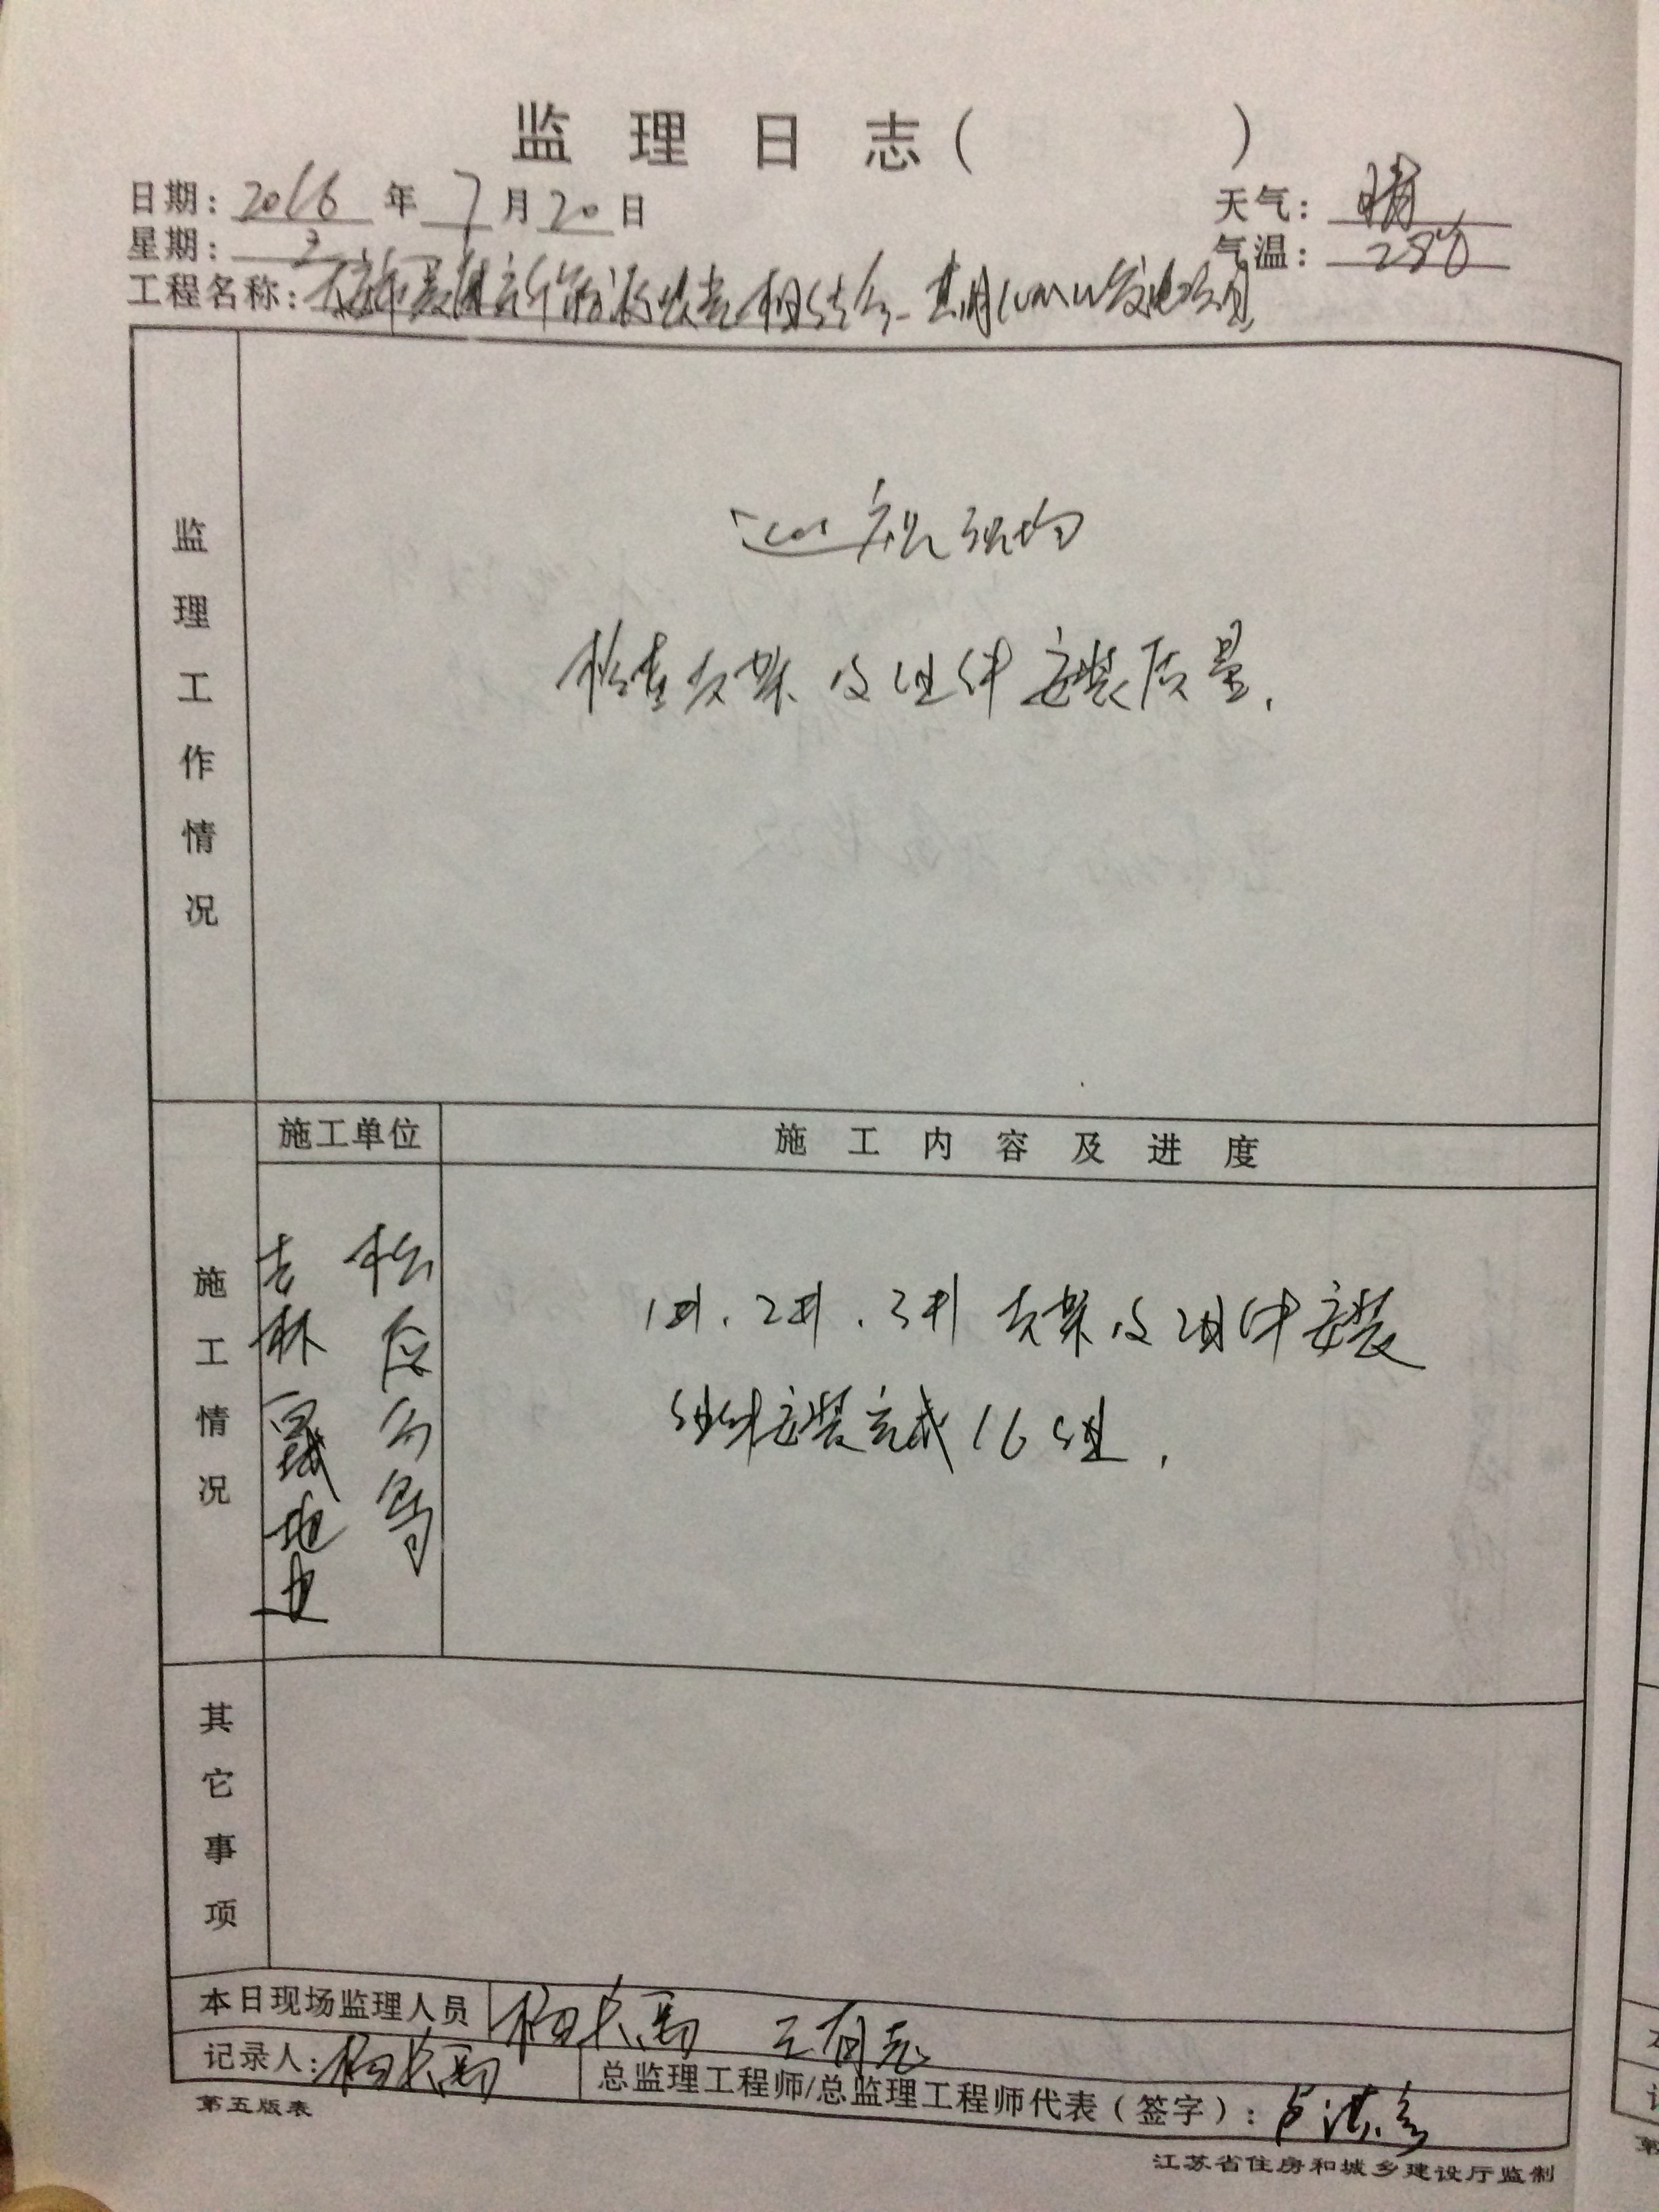 监理日志( )
日期: 2016 年 7 月 20 日 天气: 晴
星期: 3 气温: 28℃
工程名称: 新能源 相结合一期10MW发电项目
监理工作情况
巡视现场
检查支架及组件安装质量.
施工单位 施工内容及进度
施工情况
吉林
1#.2#.3#支架及组件安装
组件安装完成16组.
其它事项
本日现场监理人员
记录人:
总监理工程师/总监理工程师代表(签字):
第五版表
江苏省住房和城乡建设厅监制